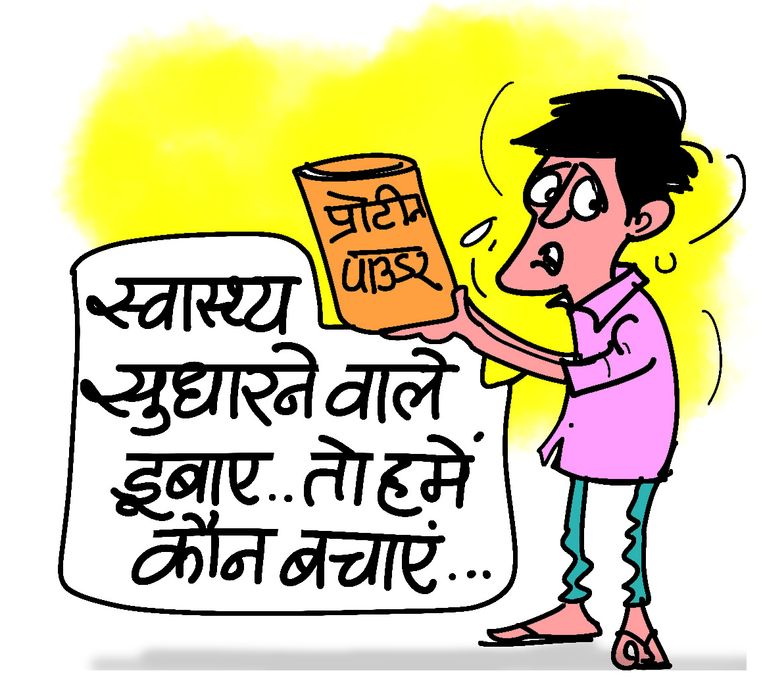 प्रोटीन
पाउडर
स्वास्थ्य
सुधारने वाले
डूबाए.. तो हमें
कौन बचाएं...